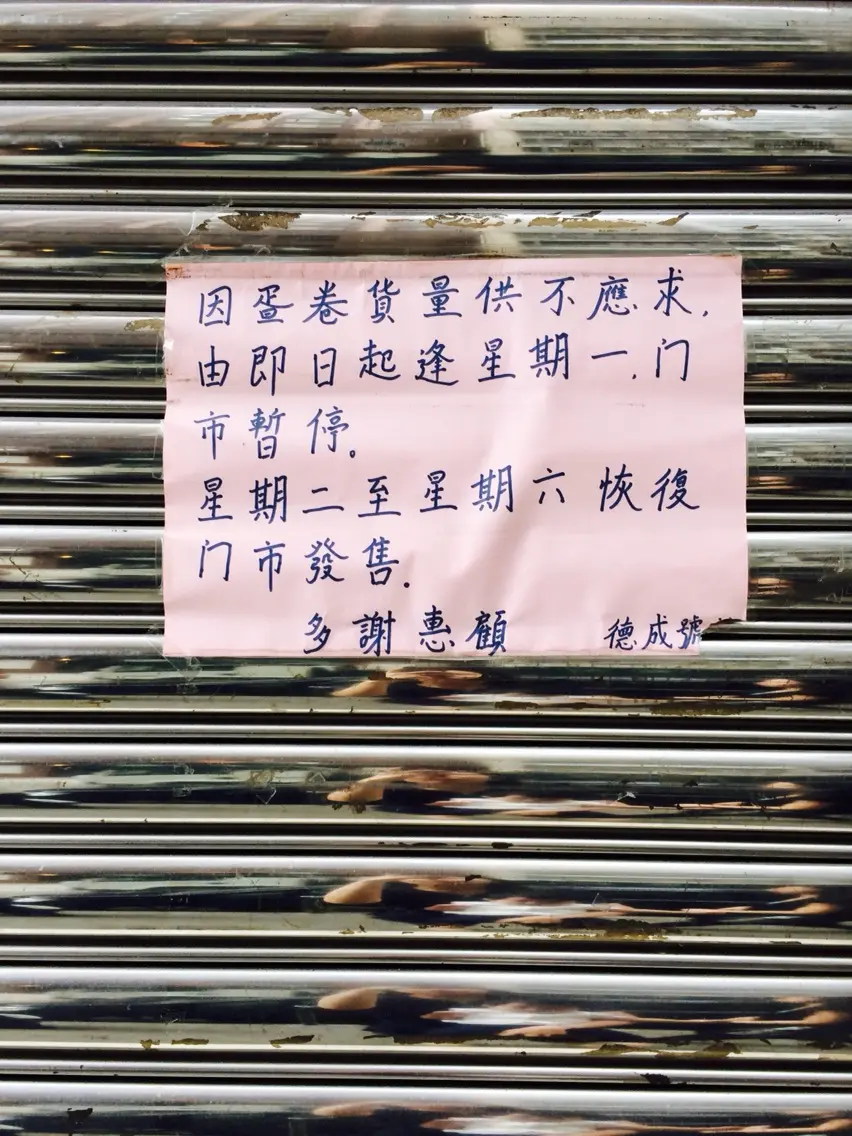 因蛋卷貨量供不應求,
由即日起逢星期一.门
市暫停。
星期二至星期六 恢復
门市發售.
多謝惠顧 德成號